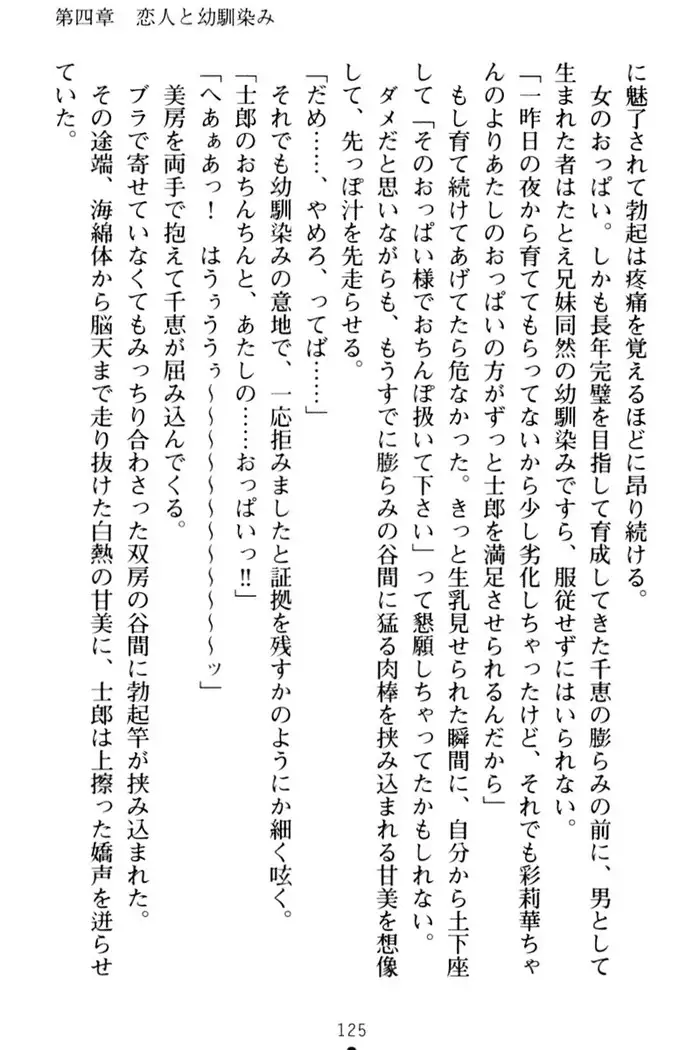 第四章　恋人と幼馴染み
に魅了されて勃起は疼痛を覚えるほどに昂り続ける。
女のおっぱい。しかも長年完璧を目指して育成してきた千恵の膨らみの前に、男として
生まれた者はたとえ兄妹同然の幼馴染みですら、服従せずにはいられない。
「一昨日の夜から育ててもらってないから少し劣化しちゃったけど、それでも彩莉華ちゃ
んのよりあたしのおっぱいの方がずっと士郎を満足させられるんだから」
もし育て続けてあげてたら危なかった。きっと生乳見せられた瞬間に、自分から土下座
して「そのおっぱい様でおちんぽ扱いて下さい」って懇願しちゃってたかもしれない。
ダメだと思いながらも、もうすでに膨らみの谷間に猛る肉棒を挟み込まれる甘美を想像
して、先っぽ汁を先走らせる。
「だめ……、やめろ、ってば……」
それでも幼馴染みの意地で、一応拒みましたと証拠を残すかのようにか細く呟く。
「士郎のおちんちんと、あたしの……おっぱいっ!!」
「へあぁあっ！　はうぅううぅ～～～～～～～～～～～ッ」
美房を両手で抱えて千恵が屈み込んでくる。
ブラで寄せていなくてもみっちり合わさった双房の谷間に勃起竿が挟み込まれた。
その途端、海綿体から脳天まで走り抜けた白熱の甘美に、士郎は上擦った嬌声を迸らせ
ていた。
125